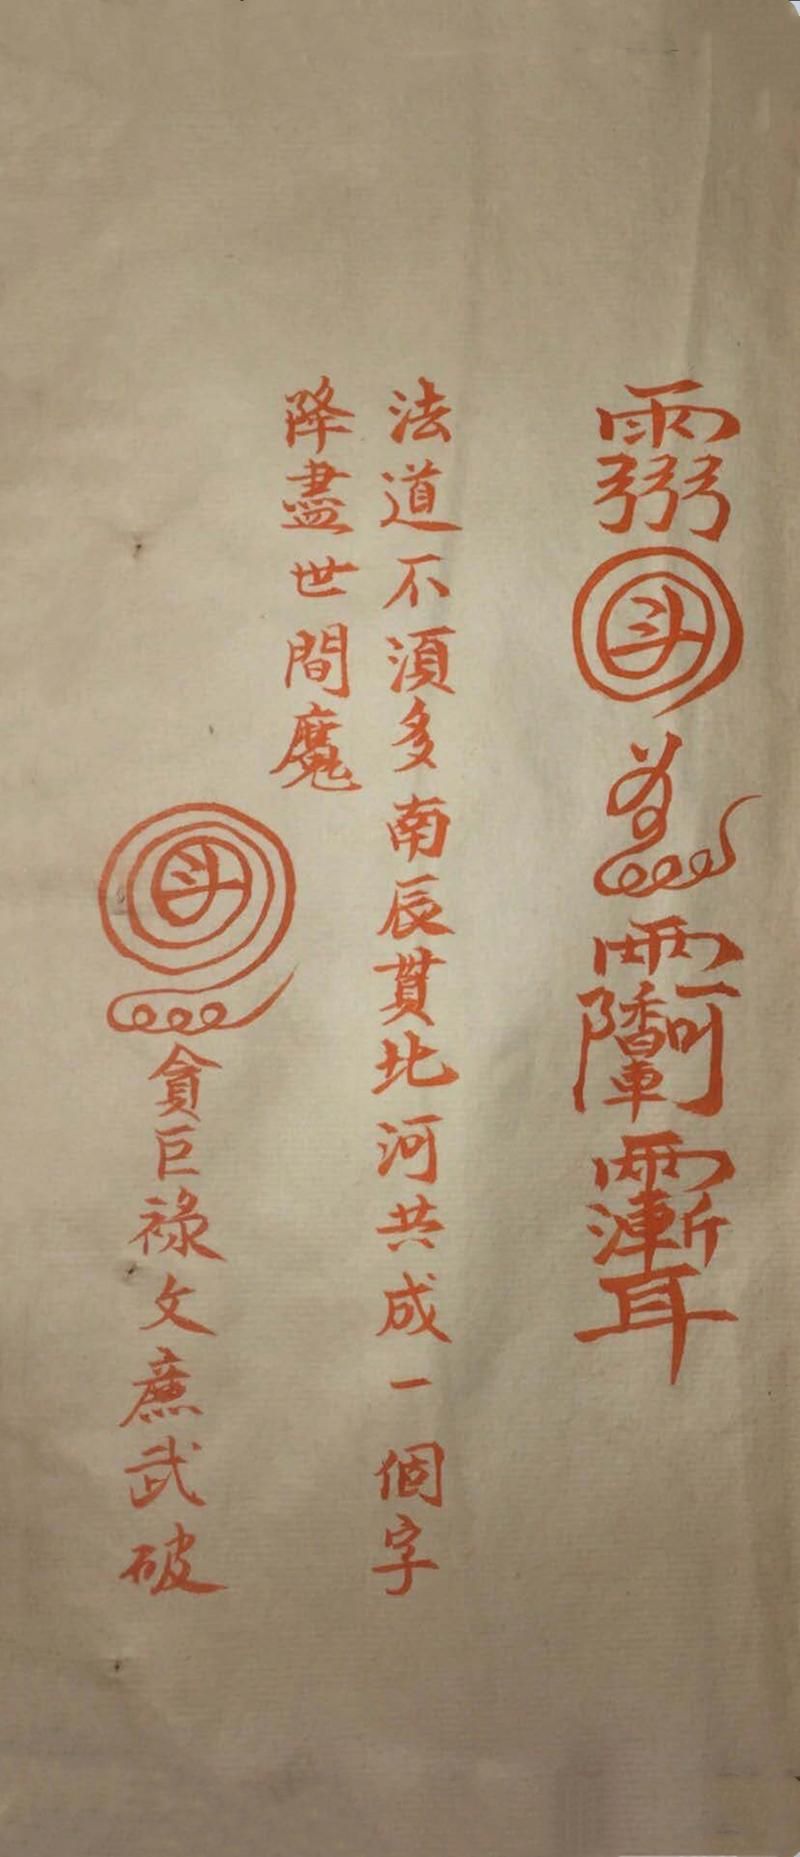 斗
法道不湏多南辰貫北河共成一個字
降盡世間魔
斗
貪巨祿文廉武破